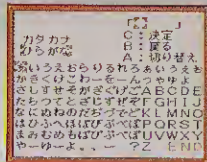 『 』
カタカナ
ひらがな
C：決定
B：戻る
A：切り替え
あいうえおらりるれろぁぃぅぇぉ
かきくけこわーをーんっゃゅょ
さしすせそがぎぐげごABCDE
たちつてとざじずぜぞFGHIJ
なにぬねのだぢづでどKLMNO
はひふへほばびぶべぼPQRST
まみむめもぱぴぷぺぽUVWXY
やーゆーよ ?Z END